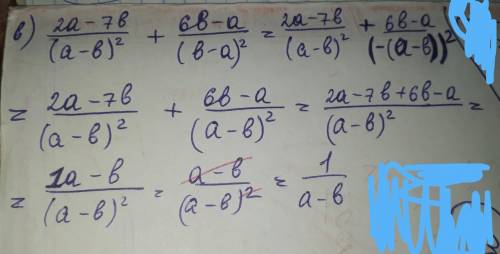 в) (2a-7в)/(a-в)² + (6в-a)/(в-a)² = (2a-7в)/(a-в)² + (6в-a)/(-(a-в))²
= (2a-7в)/(a-в)² + (6в-a)/(a-в)² = (2a-7в+6в-a)/(a-в)² =
= (1a-в)/(a-в)² = (a-в)/(a-в)² = 1/(a-в)